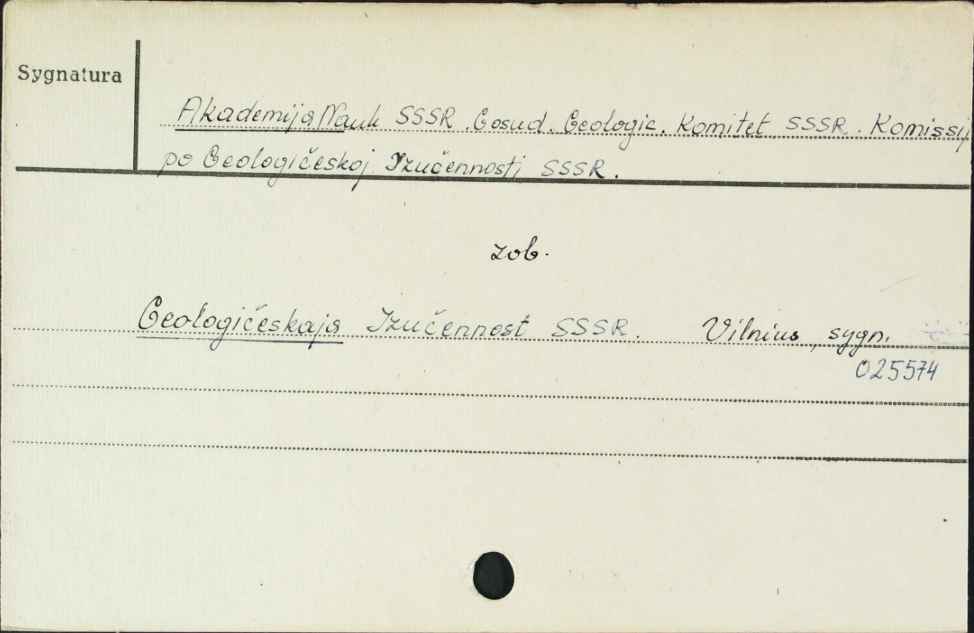 Sygnatura
Akademija Nauk SSSR. Gosud. Geologic. Komitet SSSR. Komissij
po Geologičeskoj Izučennosti SSSR.
zob.
Geologičeskaja Izučennost SSSR. Vilnius, sygn.
025574